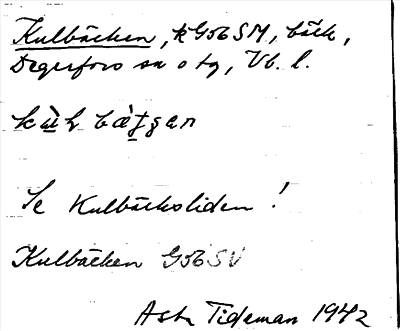 Kulbäcken, k G06 SM, bäck,
Degerfors sn o tg, Vb. l.
Se Kulbäcksliden!
Kulbäcken G06 SV
Asta Tideman 1942